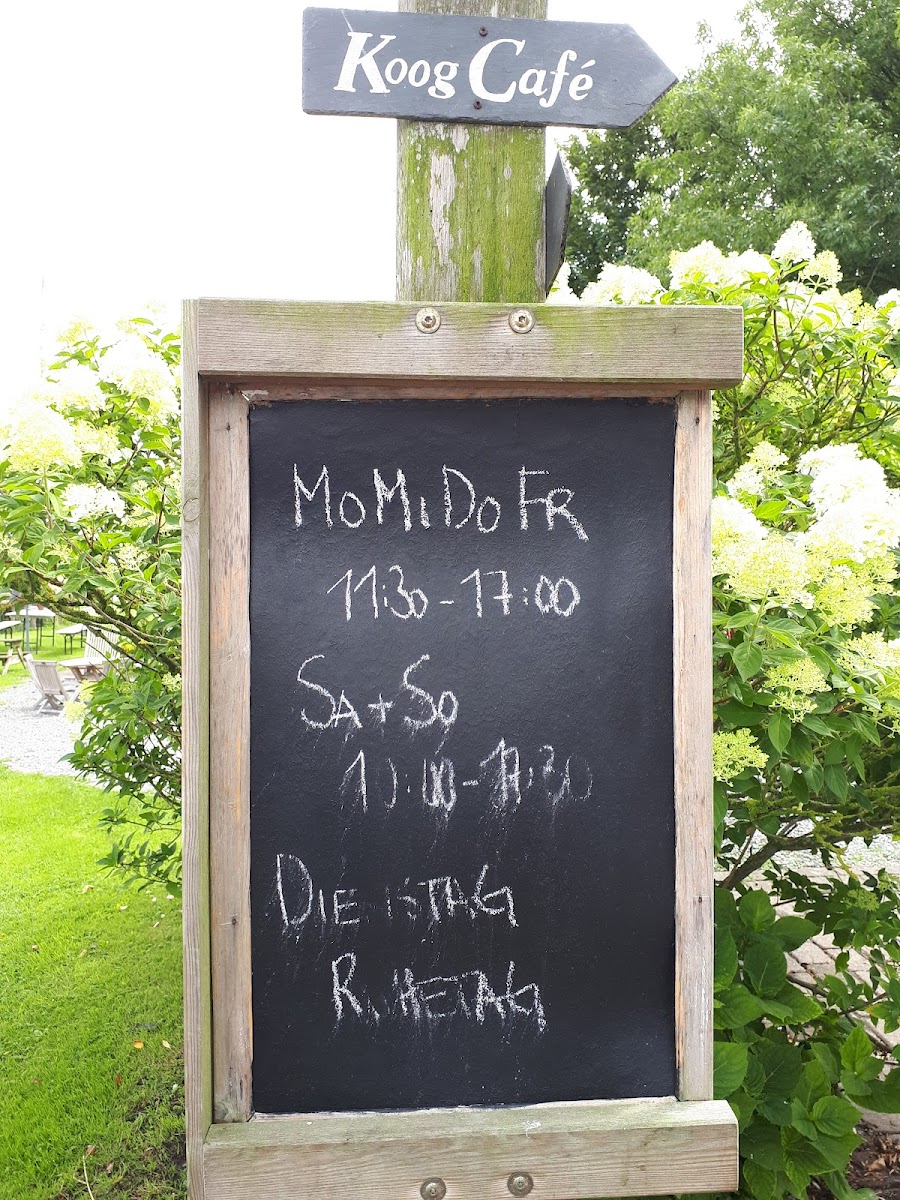 Koog Café
MoMiDoFR
11:30-17:00
SA+So
DIENSTAG
RUHETAG